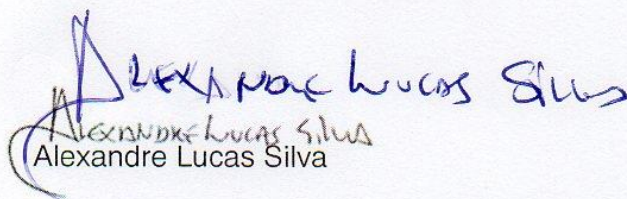 Alexandre Lucas Silva
Alexandre Lucas Silva
Alexandre Lucas Silva